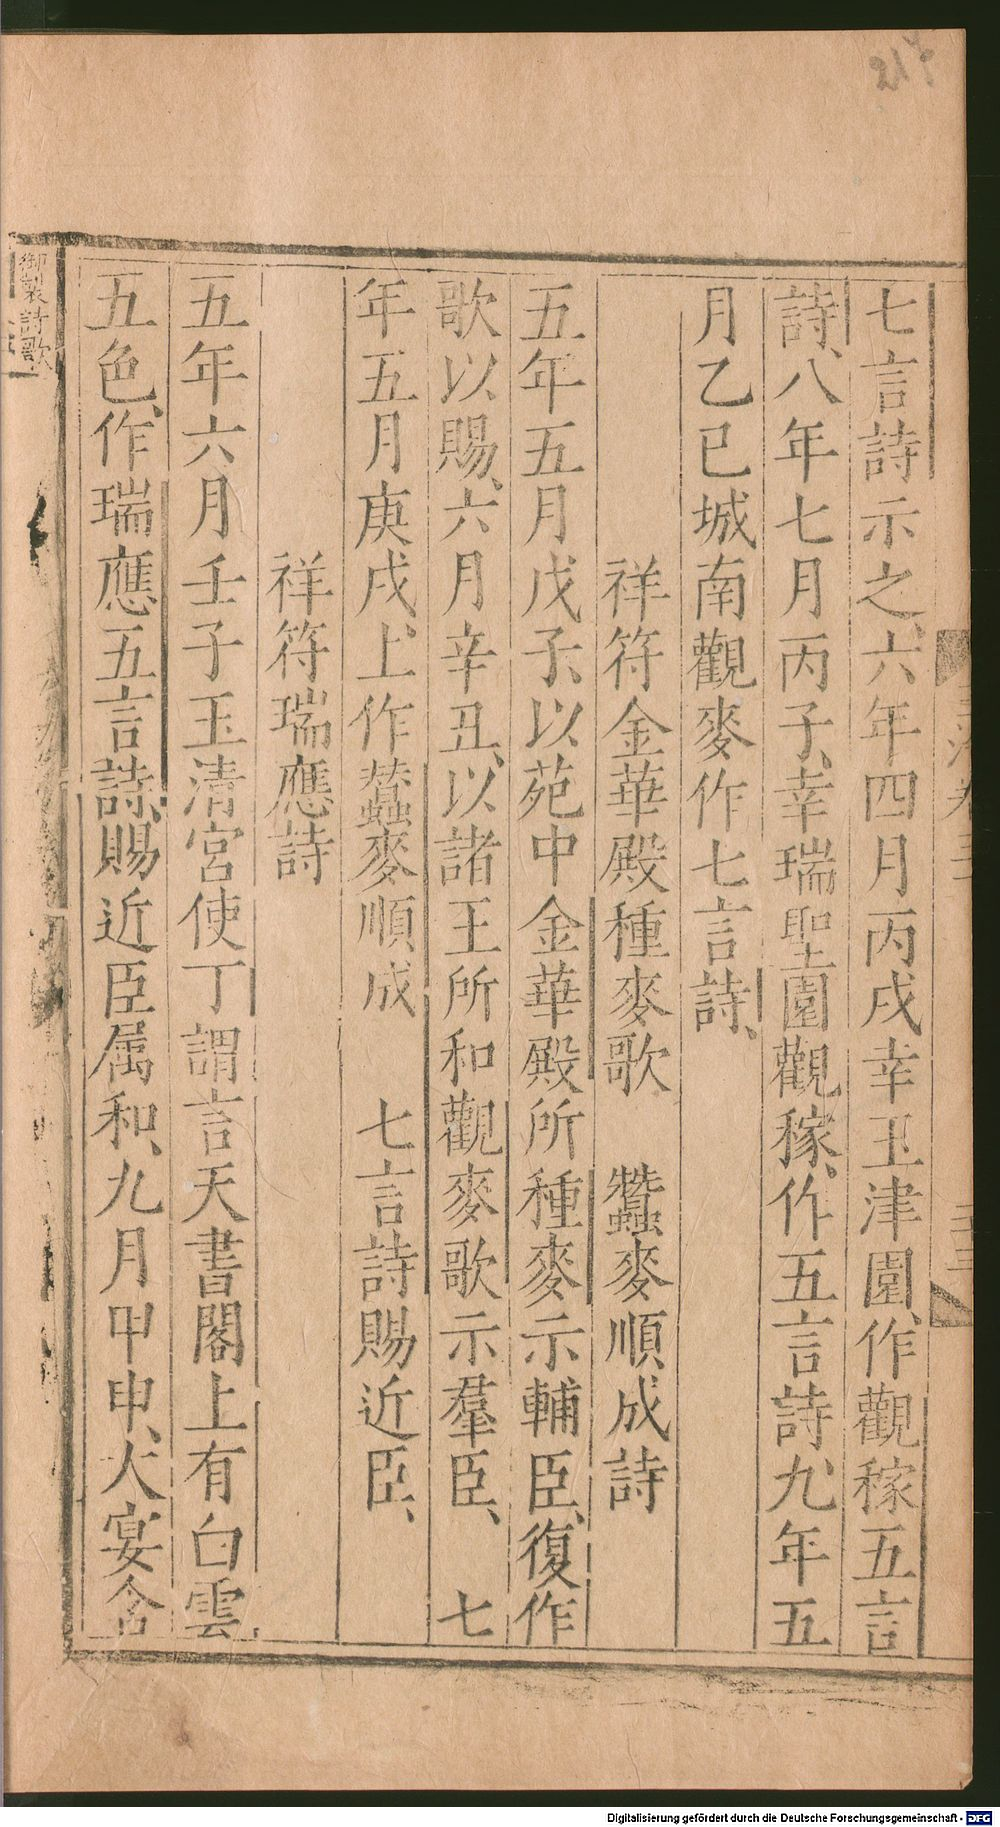 七言詩示之、六年四月丙戌幸玉津園、作觀稼五言
詩、八年七月丙子、幸瑞聖園觀稼、作五言詩、九年五
月乙巳城南觀麥作七言詩、
祥符金華殿種麥歌　蠶麥順成詩
五年五月戊子、以苑中金華殿所種麥示輔臣、復作
歌以賜、六月辛丑、以諸王所和觀麥歌示羣臣、　七
年五月庚戌、上作蠶麥順成　七言詩賜近臣、
祥符瑞應詩
五年六月壬子玉清宮使丁謂言天書閣上有白雲
五色、作瑞應五言詩、賜近臣属和、九月甲申、大宴含
御製詩歌
Digitalisierung gefördert durch die Deutsche Forschungsgemeinschaft - DFG